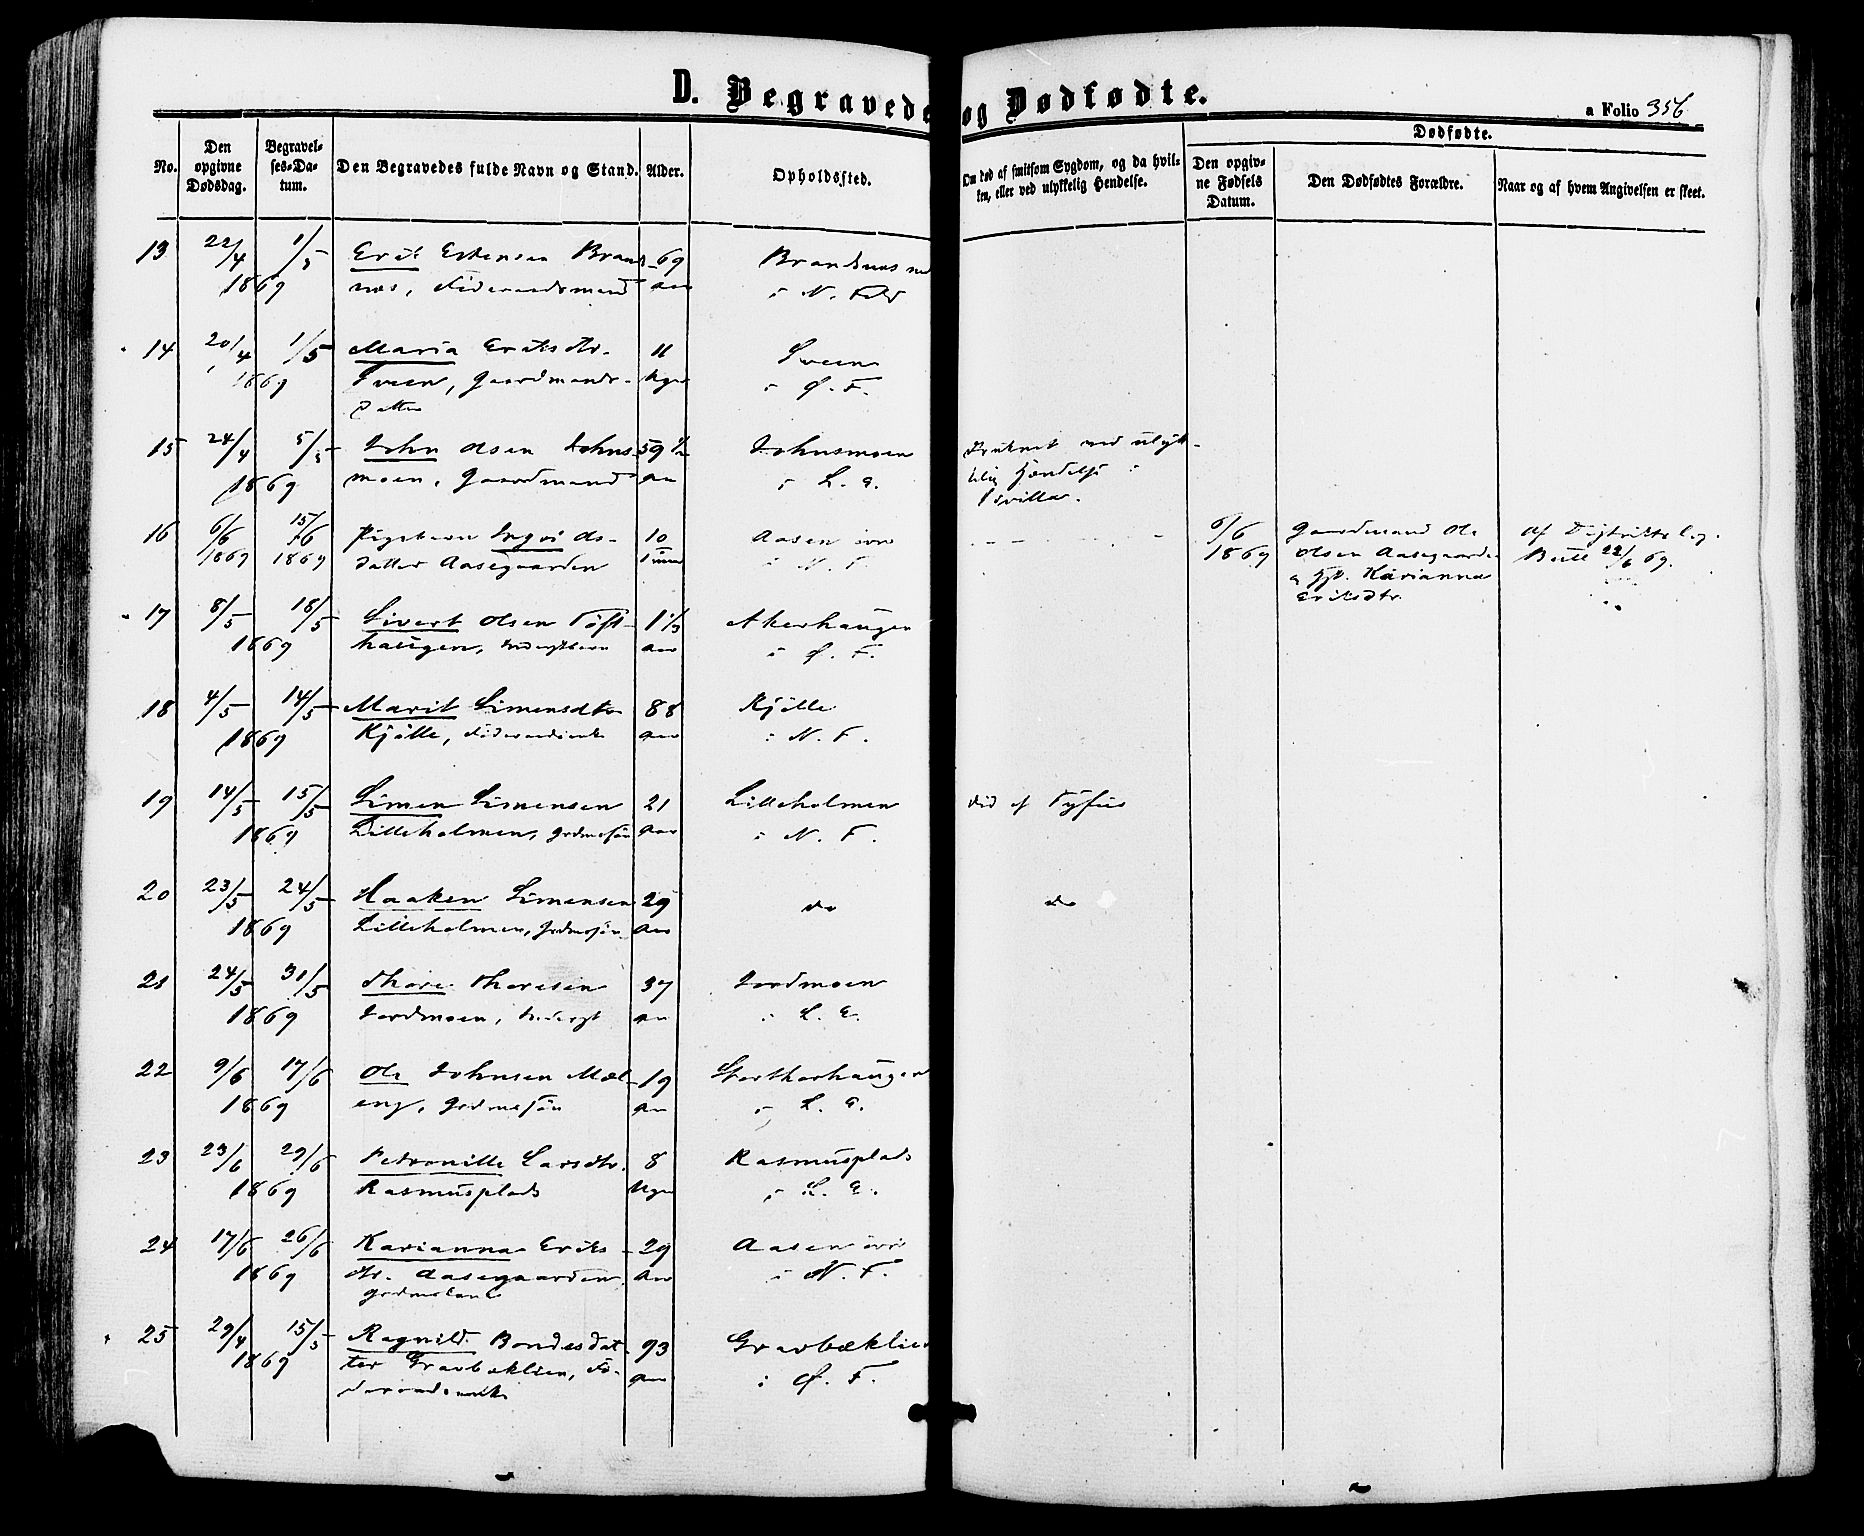 D. Begravede og Dødfødte.
a Folio 356
No.
Den opgivne Dødsdag.
Begravelses-Datum.
Den Begravedes fulde Navn og Stand.
Alder.
Opholdssted.
Om død af smitsom Sygdom, og da hvilken, eller ved ulykkelig Hendelse.
Dødfødte.
Den opgivne Fødsels Datum.
Den Dødfødtes Forældre.
Naar og af hvem Angivelsen er skeet.
13 22/4 1/5 Erik Estensen Brand- 69 Brandnes
1869 nes, Føderaadsmand aar i N. Fold
14 20/4 1/5 Maria Eriksdtr. 11 Sveen
1869 Sveen, Gaardmands- Uger i Ø. F.
datter
15 24/4 5/5 John Olsen Johns- 59 1/2 Johnsmoen Druknet ved ulyk-
1869 moen, Gaardmand aar i L. E. kelig Hændelse i
16 6/6 15/6 Pigebarn Ingri Ols- 10 Aasen øvre 6/6 Gaardmand Ole Af Distriktslæg.
1869 1869 datter Aasegaarden i N. F. 1869 Olsen Aasegaarden 22/6 69.
& Hst. Karianna
Eriksdtr.
17 8/5 18/5 Sivert Olsen Toft- 1 1/3 Akerhaugen
1869 haugen, Inderstbarn aar i Ø. F.
18 4/5 14/5 Marit Simensdtr 88 Kjølle
1869 Kjølle, Føderaadsenke aar i N. F.
19 14/5 15/5 Simen Simensen 21 Lilleholmen död af Tyfus
1869 Lilleholmen, Grdmssøn aar i N. F.
20 23/5 24/5 Haaken Simensen 29 do do
1869 Lilleholmen, Grdmssøn aar
21 24/5 31/5 Thore Thoresen 37 Jordmoen
1869 Jordmoen, Inderst aar i L. E.
22 9/6 17/6 Ole Johnsen Mæl- 19 Storthorhaugen
1869 eng, Grdmssøn aar i L. E.
23 23/6 29/6 Petronille Larsdtr. 8 Rasmusplads
1869 Rasmusplads Uger i L. E.
24 17/6 26/6 Karianna Eriks- 29 Aasen øvre
1869 dtr. Aasegaarden, aar i N. F.
Grdmskone
25 29/4 15/5 Ragnild Bondesdat- 93 Gravbæklien
1869 ter Gravbæklien, Fø- aar i Ø. F.
deraadsenke